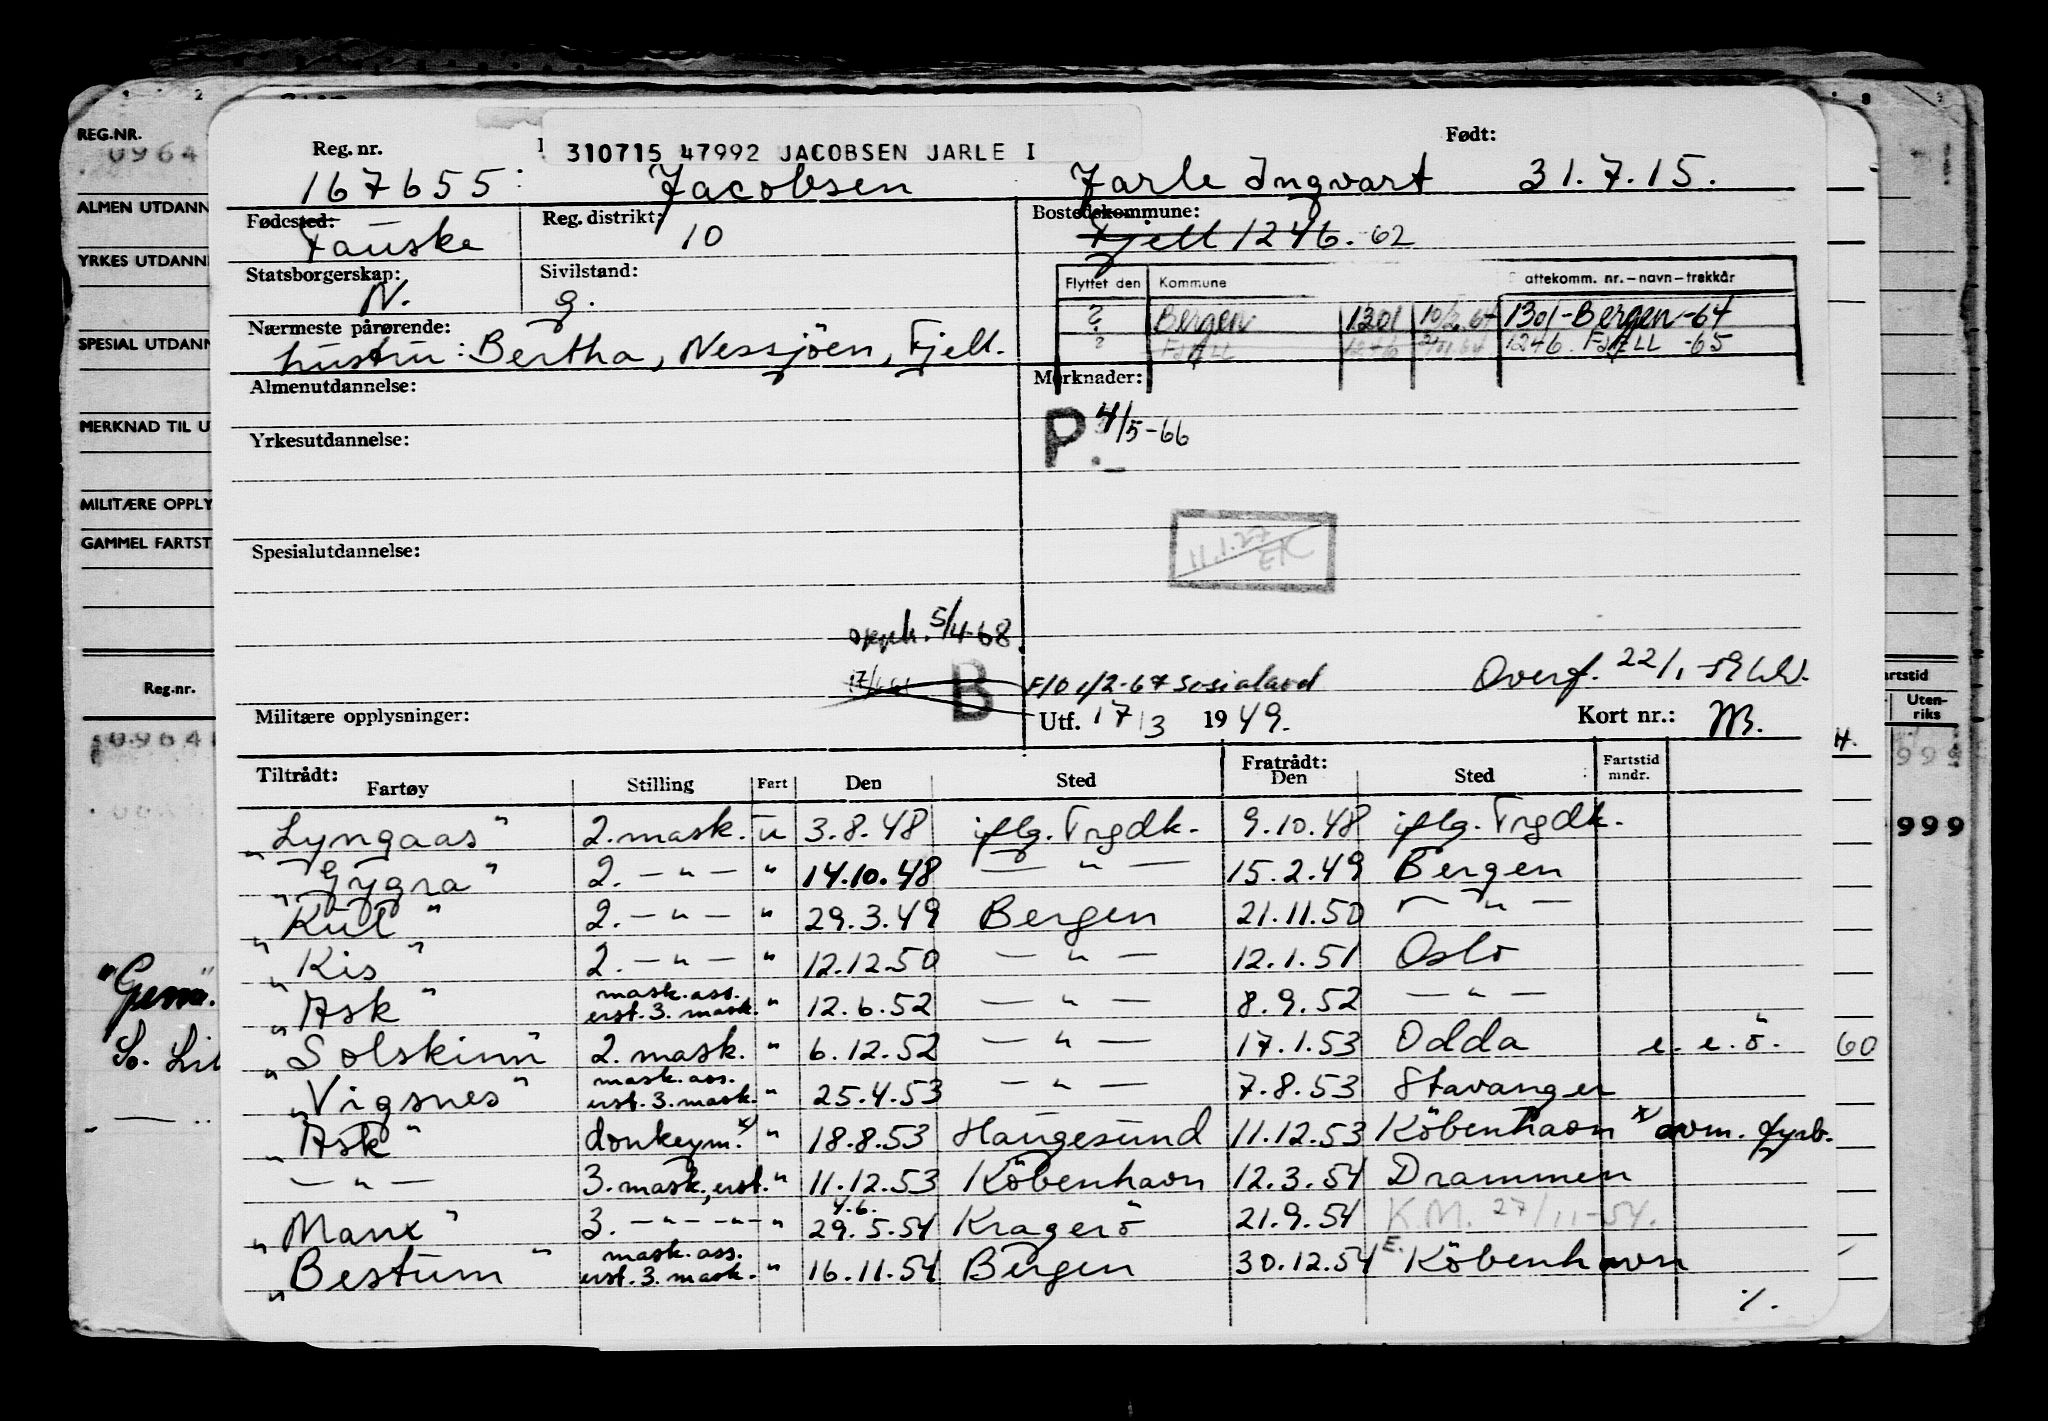 REG.NR.
0964
ALMEN UTDANN
YRKES UTDANN
SPESIAL UTDANN
MERKNAD TIL U
MILITÆRE OPPLY
GAMMEL FARTST
Reg.nr.
0964
"Gem".
So. Lil
Reg. nr.
310715 47992 JACOBSEN JARLE I
Født:
167655 Jacobsen Jarle Ingvart 31.7.15.
Fødested: Reg. distrikt: Bostedskommune:
Fauske 10 Fjell 1246. 62
Statsborgerskap: Sivilstand:
N. g.
Flyttet den Kommune attekomm. nr.–navn–trekkår
? Bergen 1301 10/2 64 1301-Bergen-64
? FJELL 1246 1246. FJELL -65
Nærmeste pårørende:
hustru: Bertha, Nessjöen, Fjell.
Almenutdannelse: Merknader:
P 4/5-66
Yrkesutdannelse:
Spesialutdannelse:
11.1.27 EK
5/4-68.
B F10 1/2-67 Sosialavd Overf. 22/1-59
Militære opplysninger: Utf. 17/3 1949. Kort nr.: M.
Tiltrådt: Fratrådt: Fartstid mndr.
Fartøy Stilling Fart Den Sted Den Sted
"Lyngaas" 2. mask. u 3.8.48 iflg. Trgdk. 9.10.48 iflg. Trgdk.
"Gygra" 2. — " — " 14.10.48 — " — 15.2.49 Bergen
"Kul" 2. — " — " 29.3.49 Bergen 21.11.50 — " —
"Kis" 2. — " — " 12.12.50 — " — 12.1.51 Oslo
"Ask" mask. ass. erst. 3. mask. " 12.6.52 — " — 8.9.52 — " —
"Solskinn" 2. mask. " 6.12.52 — " — 17.1.53 Odda e. e. ö.
"Vigsnes" mask. ass. erst. 3. mask. " 25.4.53 — " — 7.8.53 Stavanger
"Ask" donkeym. x) " 18.8.53 Haugesund 11.12.53 Köbenhavn x) avm. fyrb.
— " — 3. mask. erst. " 11.12.53 Köbenhavn 12.3.54 Drammen
4.6.
"Manx" 3. — " — " — " 29.5.54 Kragerö 21.9.54 K.M. 27/11-54.
"Bestum" mask. ass. erst. 3. mask. " 16.11.54 Bergen 30.12.54 E. Köbenhavn
./.
H.
60
artstid
Uten-
riks
999
999